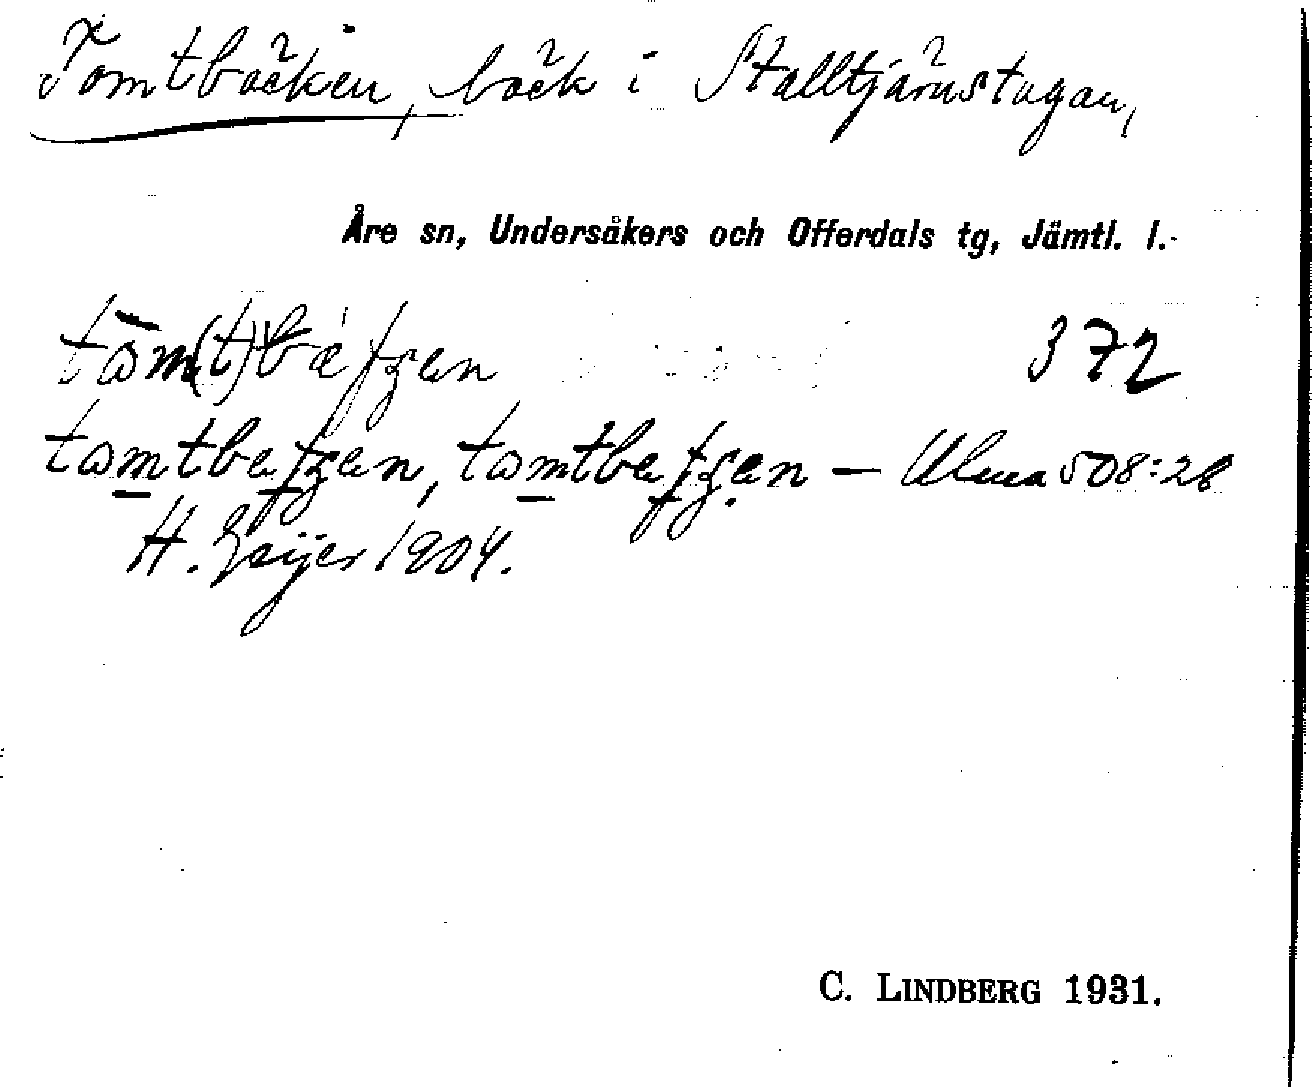 Tomtbäcken, bäck i Stalltjärnstugan,
Åre sn, Undersåkers och Offerdals tg, Jämtl. l.
372
— Ulma 508:28
H. Geijer 1904.
C. LINDBERG 1931.